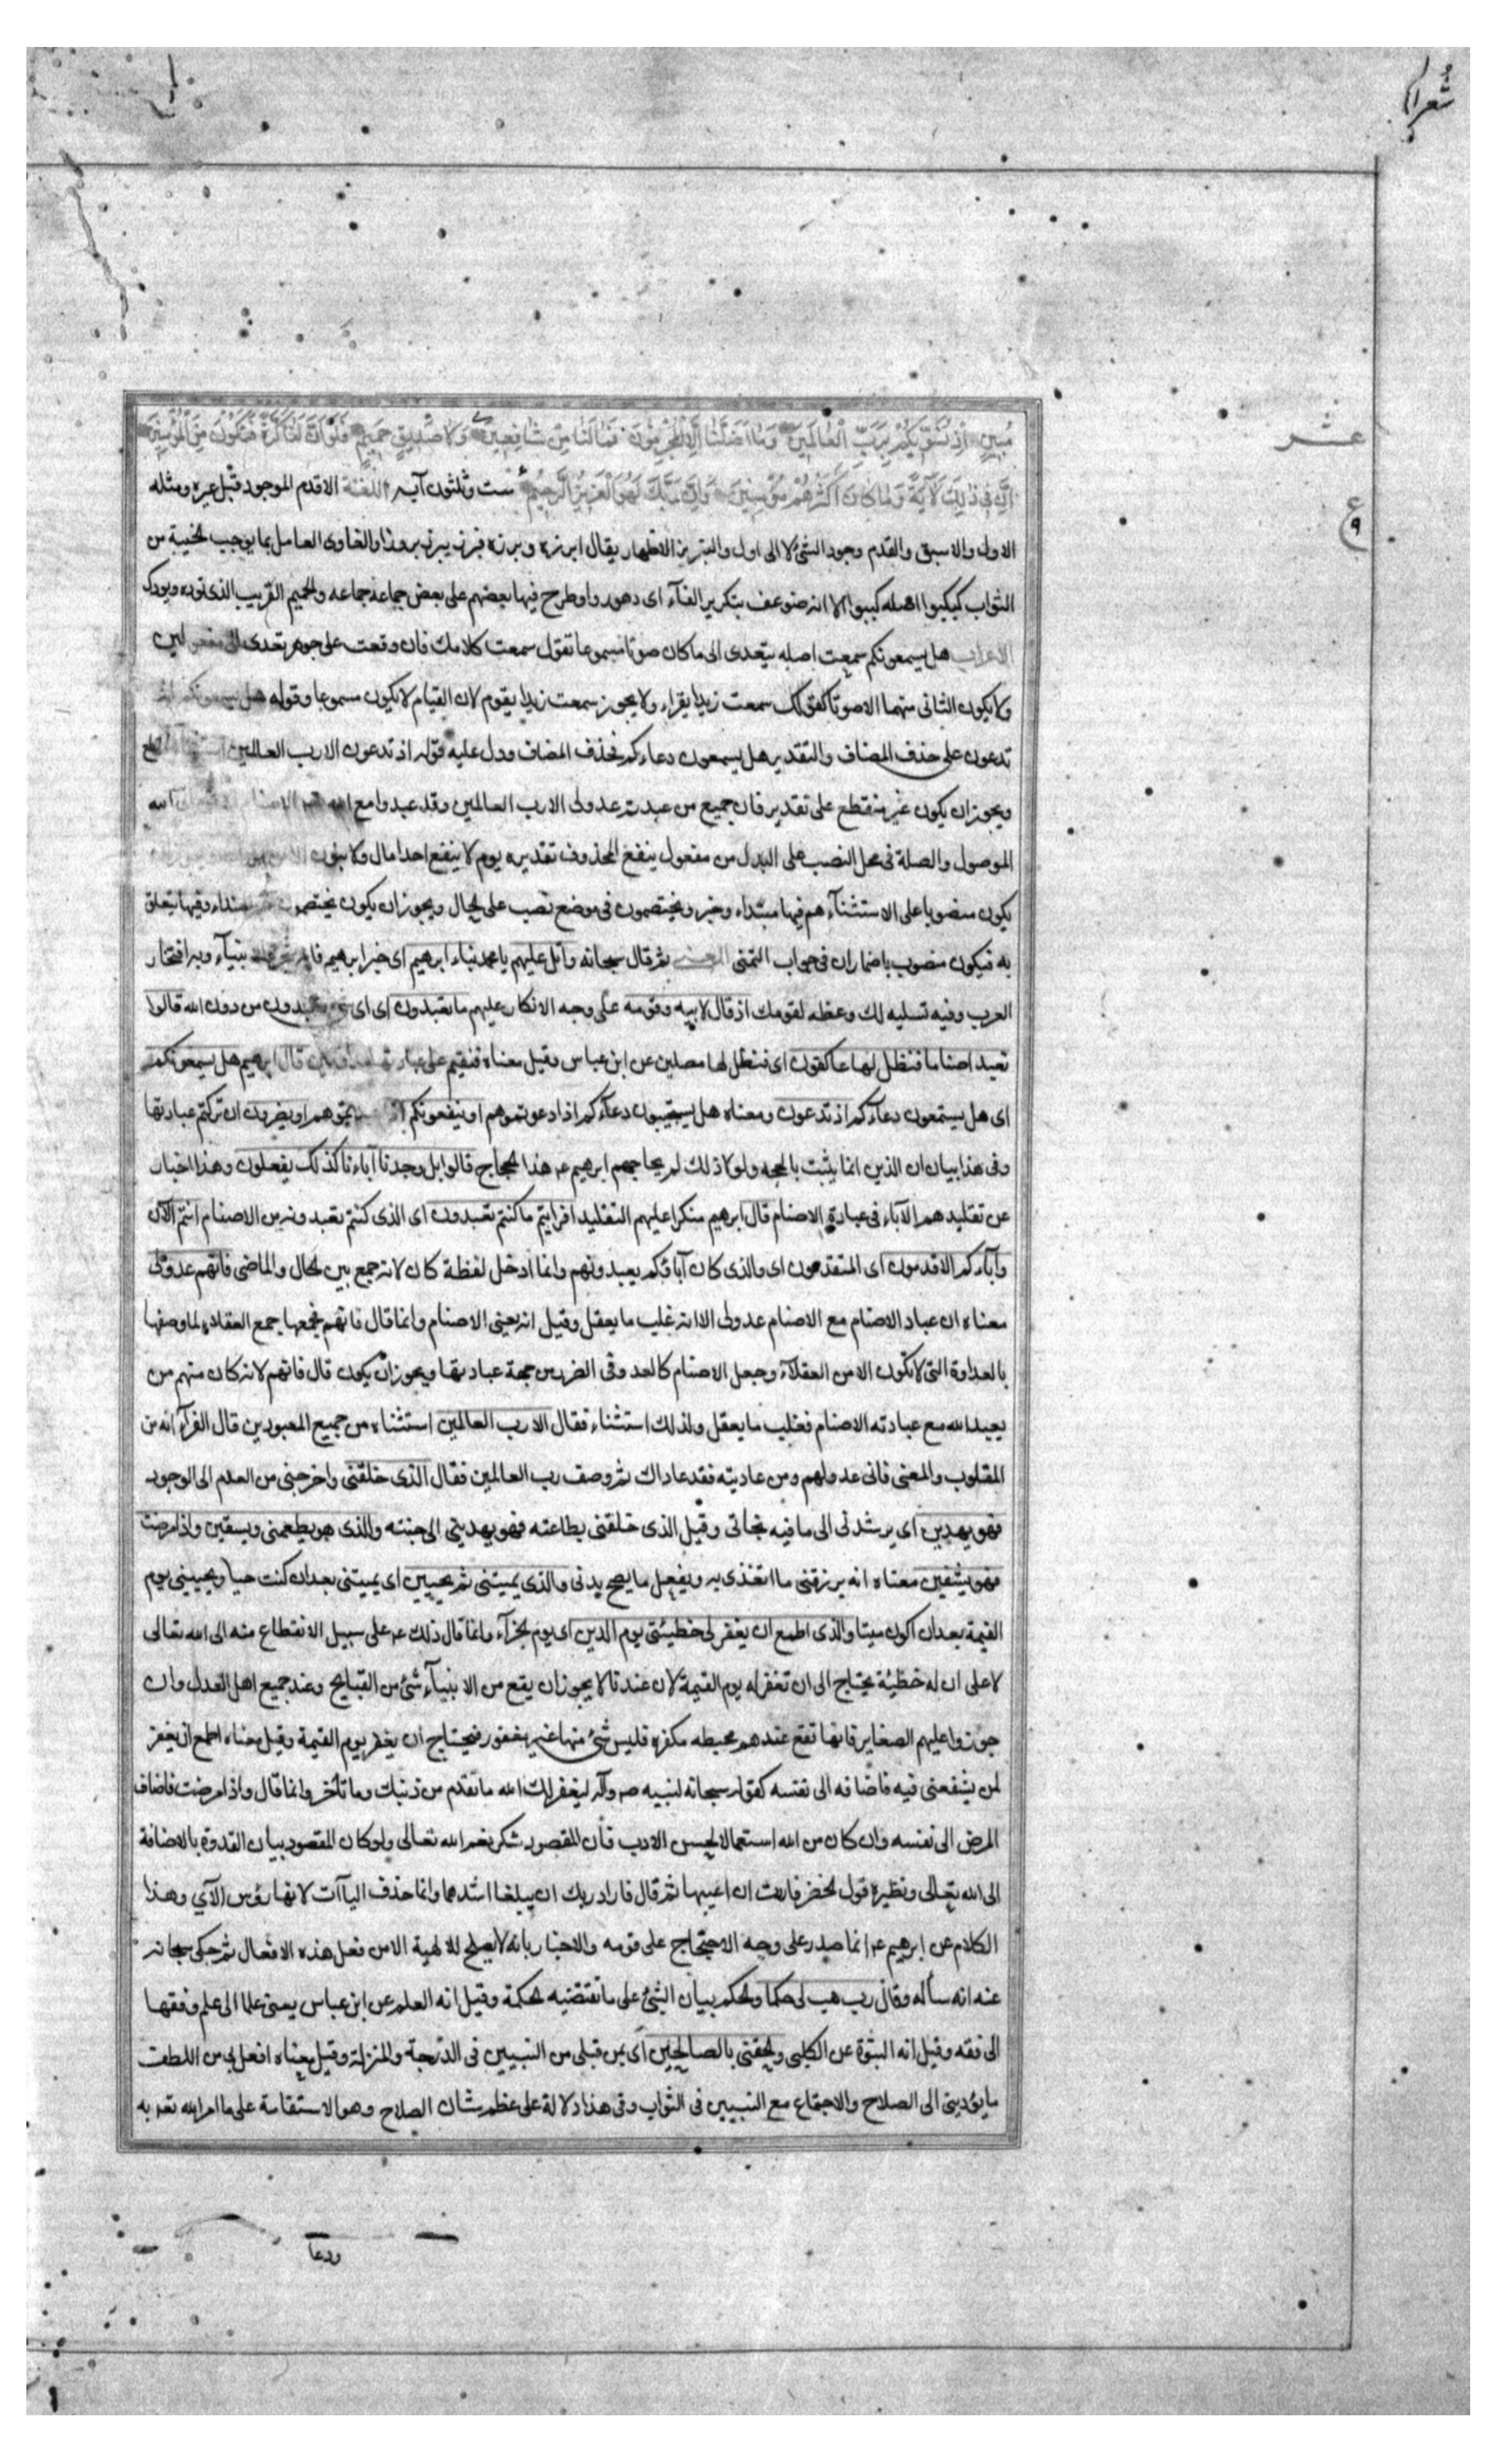 شعرا
عشر
ع ٩
مُبِينٍ اِذْ نُسَوِّيكُمْ بِرَبِّ الْعَالَمِينَ وَمَا اَضَلَّنَا اِلَّا الْمُجْرِمُونَ فَمَا لَنَا مِنْ شَافِعِينَ وَلَا صَدِيقٍ حَمِيمٍ فَلَوْ اَنَّ لَنَا كَرَّةً فَنَكُونَ مِنَ الْمُؤْمِنِينَ
اِنَّ فِي ذٰلِكَ لَآيَةً وَمَا كَانَ اَكْثَرُهُمْ مُؤْمِنِينَ وَاِنَّ رَبَّكَ لَهُوَ الْعَزِيزُ الرَّحِيمُ ست وثلثون آيه اللغة الاقدم الموجود قبل غيره ومثله
الاول والاسبق والقدم وجود الشئ لا الى اول والتبريز الاظهار يقال ابرزه وبرزه فبرز يبرز بروزا والغاوى العامل بما يوجب الخيبة من
الثواب كبكبوا اصله كببوا الا انه ضوعف بتكرير الفآء اى دهوروا وطرح فيها بعضهم على بعض جماعة جماعه والحميم القريب الذى توده ويودك
الاعراب هل يسمعونكم سمعت اصله يتعدى الى ما كان صوتا مسموعا تقول سمعت كلامك فان وقعت على جوهر تعدى الى مفعولين
ولا يكون الثانى منهما الا صوتا كقولك سمعت زيدا يقراء ولا يجوز سمعت زيدا يقوم لان القيام لا يكون مسموعا وقوله هل يسمعونكم اذ
تدعون على حذف المضاف والتقدير هل يسمعون دعاءكم فحذف المضاف ودل عليه قوله اذ تدعون الا رب العالمين
ويجوز ان يكون غير منقطع على تقدير فان جميع من عبدتم عدو لى الا رب العالمين وقد عبدوا مع الله الاصنام الله
الموصول والصلة فى محل النصب على البدل من مفعول ينفع المحذوف تقديره يوم لا ينفع احدا مال ولا بنون
يكون منصوبا على الاستثنآء هم فيها مبتداء وخبر ويختصمون فى موضع نصب على الحال ويجوز ان يكون يختصمون مبتداء وفيها يتعلق
به فيكون منصوب باضمار ان فى جواب التمنى المعنى ثم قال سبحانه واتل عليهم يا محمد نباء ابرهيم اى خبر ابرهيم بنبآء وبه افتخار
العرب وفيه تسليه لك وعظه لقومك اذ قال لابيه وقومه على وجه الانكار عليهم ما تعبدون اى اى شئ تعبدون من دون الله قالوا
نعبد اصناما فنظل لها عاكفون اى فنظل لها مصلين عن ابن عباس وقيل معناه فنقيم على عبادتها قال ابرهيم هل يسمعونكم
اى هل يستمعون دعآءكم اذ تدعون ومعناه هل يستجيبون دعآءكم اذا دعوتموهم او ينفعونكم او يضرون ان تركتم عبادتها
وفى هذا بيان ان الدين انما يثبت بالحجه ولولا ذلك لم يحاجهم ابرهيم عم هذا الحجاج قالوا بل وجدنا آباءنا كذلك يفعلون وهذا اخبار
عن تقليدهم الآباء فى عبادة الاصنام قال ابرهيم منكرا عليهم التقليد افرايتم ما كنتم تعبدون اى الذى كنتم تعبدونه من الاصنام انتم الآن
وآباءكم الاقدمون اى المتقدمون اى والذى كان آباؤكم يعبدونهم وانما ادخل لفظة كان لانه جمع بين الحال والماضى فانهم عدو لى
معناه ان عباد الاصنام مع الاصنام عدو لى الا انه غلب ما يعقل وقيل انه يعنى الاصنام وانما قال فانهم فجمعها جمع العقلاء لما وصفها
بالعداوة التى لا تكون الا من العقلآء وجعل الاصنام كالعدو فى الضرر من جهة عبادتها ويجوز ان يكون قال فانهم لانه كان منهم من
يعبد الله مع عبادته الاصنام فغلب ما يعقل ولذلك استثناء فقال الا رب العالمين استثناه من جميع المعبودين قال الفرآء انه من
المقلوب والمعنى فانى عدو لهم ومن عاديته فقد عاداك ثم وصف رب العالمين فقال الذى خلقنى واخرجنى من العدم الى الوجود
فهو يهدين اى يرشدنى الى ما فيه نجاتى وقيل الذى خلقنى بطاعته فهو يهدينى الى جنته والذى هو يطعمنى ويسقين واذا مرضت
فهو يشفين معناه انه يرزقنى ما اتغذى به ويفعل ما يصح بدنى والذى يميتنى ثم يحيين اى يميتنى بعد ان كنت حيا ويحيينى يوم
القيمة بعد ان اكون ميتا والذى اطمع ان يغفر لى خطيئتى يوم الدين اى يوم الجزآء وانما قال ذلك عم على سبيل الانقطاع منه الى الله تعالى
لا على ان له خطيئة يحتاج الى ان تغفر له يوم القيمة لان عندنا لا يجوز ان يقع من الانبيآء شئ من القبايح وعند جميع اهل العدل وان
جوزوا عليهم الصغاير فانها تقع عندهم محبطه مكفره فليس شئ منها غير مغفور فيحتاج ان يغفر يوم القيمة وقيل معناه اطمع ان يغفر
لمن يشفعنى فيه فاضافه الى نفسه كقوله سبحانه لنبيه صم وآله ليغفر لك الله ما تقدم من ذنبك وما تأخر وانما قال واذا مرضت فاضاف
المرض الى نفسه وان كان من الله استعمالا لحسن الادب فان المقصود شكر نعم الله تعالى ولو كان المقصود بيان القدرة بالاضافة
الى الله تعالى ونظيره قول الخضر فاردت ان اعيبها ثم قال فاراد ربك ان يبلغا اشدهما وانما حذف الياآت لانها رؤس الآي وهذا
الكلام عن ابرهيم عم انما صدر على وجه الاحتجاج على قومه والاخبار بانه لا يصلح للالهية الا من فعل هذه الافعال ثم حكى سبحانه
عنه انه سأله وقال رب هب لى حكما والحكم بيان الشئ على ما تقتضيه الحكمة وقيل انه العلم عن ابن عباس يعنى علما الى علم وفقها
الى فقه وقيل انه النبوة عن الكلبى والحقنى بالصالحين اى بمن قبلى من النبيين فى الدرجة والمنزلة وقيل معناه افعل بى من اللطف
ما يؤدينى الى الصلاح والاجتماع مع النبيين فى الثواب وفى هذا دلالة على عظم شان الصلاح وهو الاستقامة على ما امر الله تعم به
ودعآ